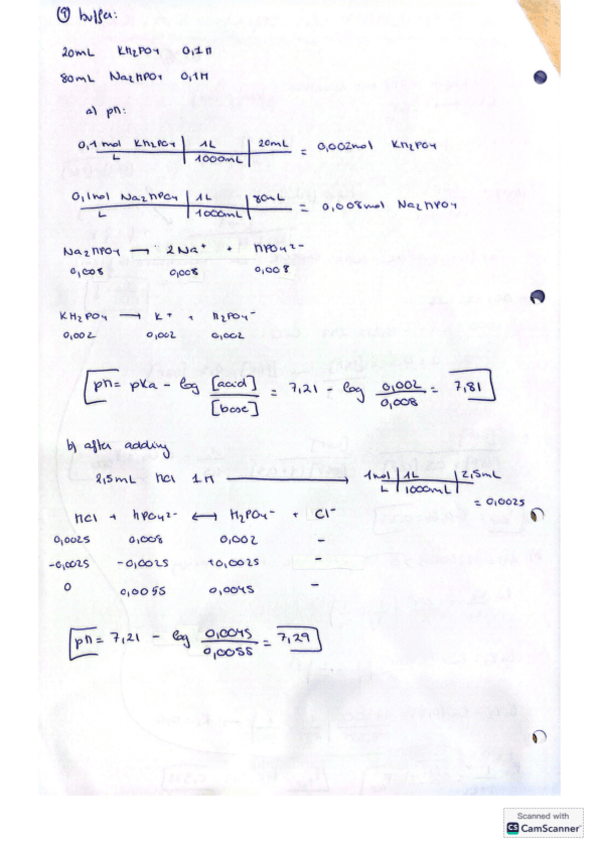 ⑨ buffer:
20mL KH2PO4 0,1M
80mL Na2HPO4 0,1M
a) pH:
0,1 mol KH2PO4 | 1L | 20mL = 0,002mol KH2PO4
L | 1000mL |
0,1mol Na2HPO4 | 1L | 80mL = 0,008mol Na2HPO4
L | 1000mL |
Na2HPO4 → 2Na+ + HPO4 2-
0,008 0,008 0,008
KH2PO4 → K+ + H2PO4-
0,002 0,002 0,002
pH = pKa - log [acid]/[base] = 7,21 - log 0,002/0,008 = 7,81
b) after adding
2,5mL HCl 1M → 1mol | 1L | 2,5mL
L | 1000mL |
= 0,0025
HCl + HPO4 2- ↔ H2PO4- + Cl-
0,0025 0,008 0,002 -
-0,0025 -0,0025 +0,0025 -
0 0,0055 0,0045 -
pH = 7,21 - log 0,0045/0,0055 = 7,29
Scanned with
CS CamScanner